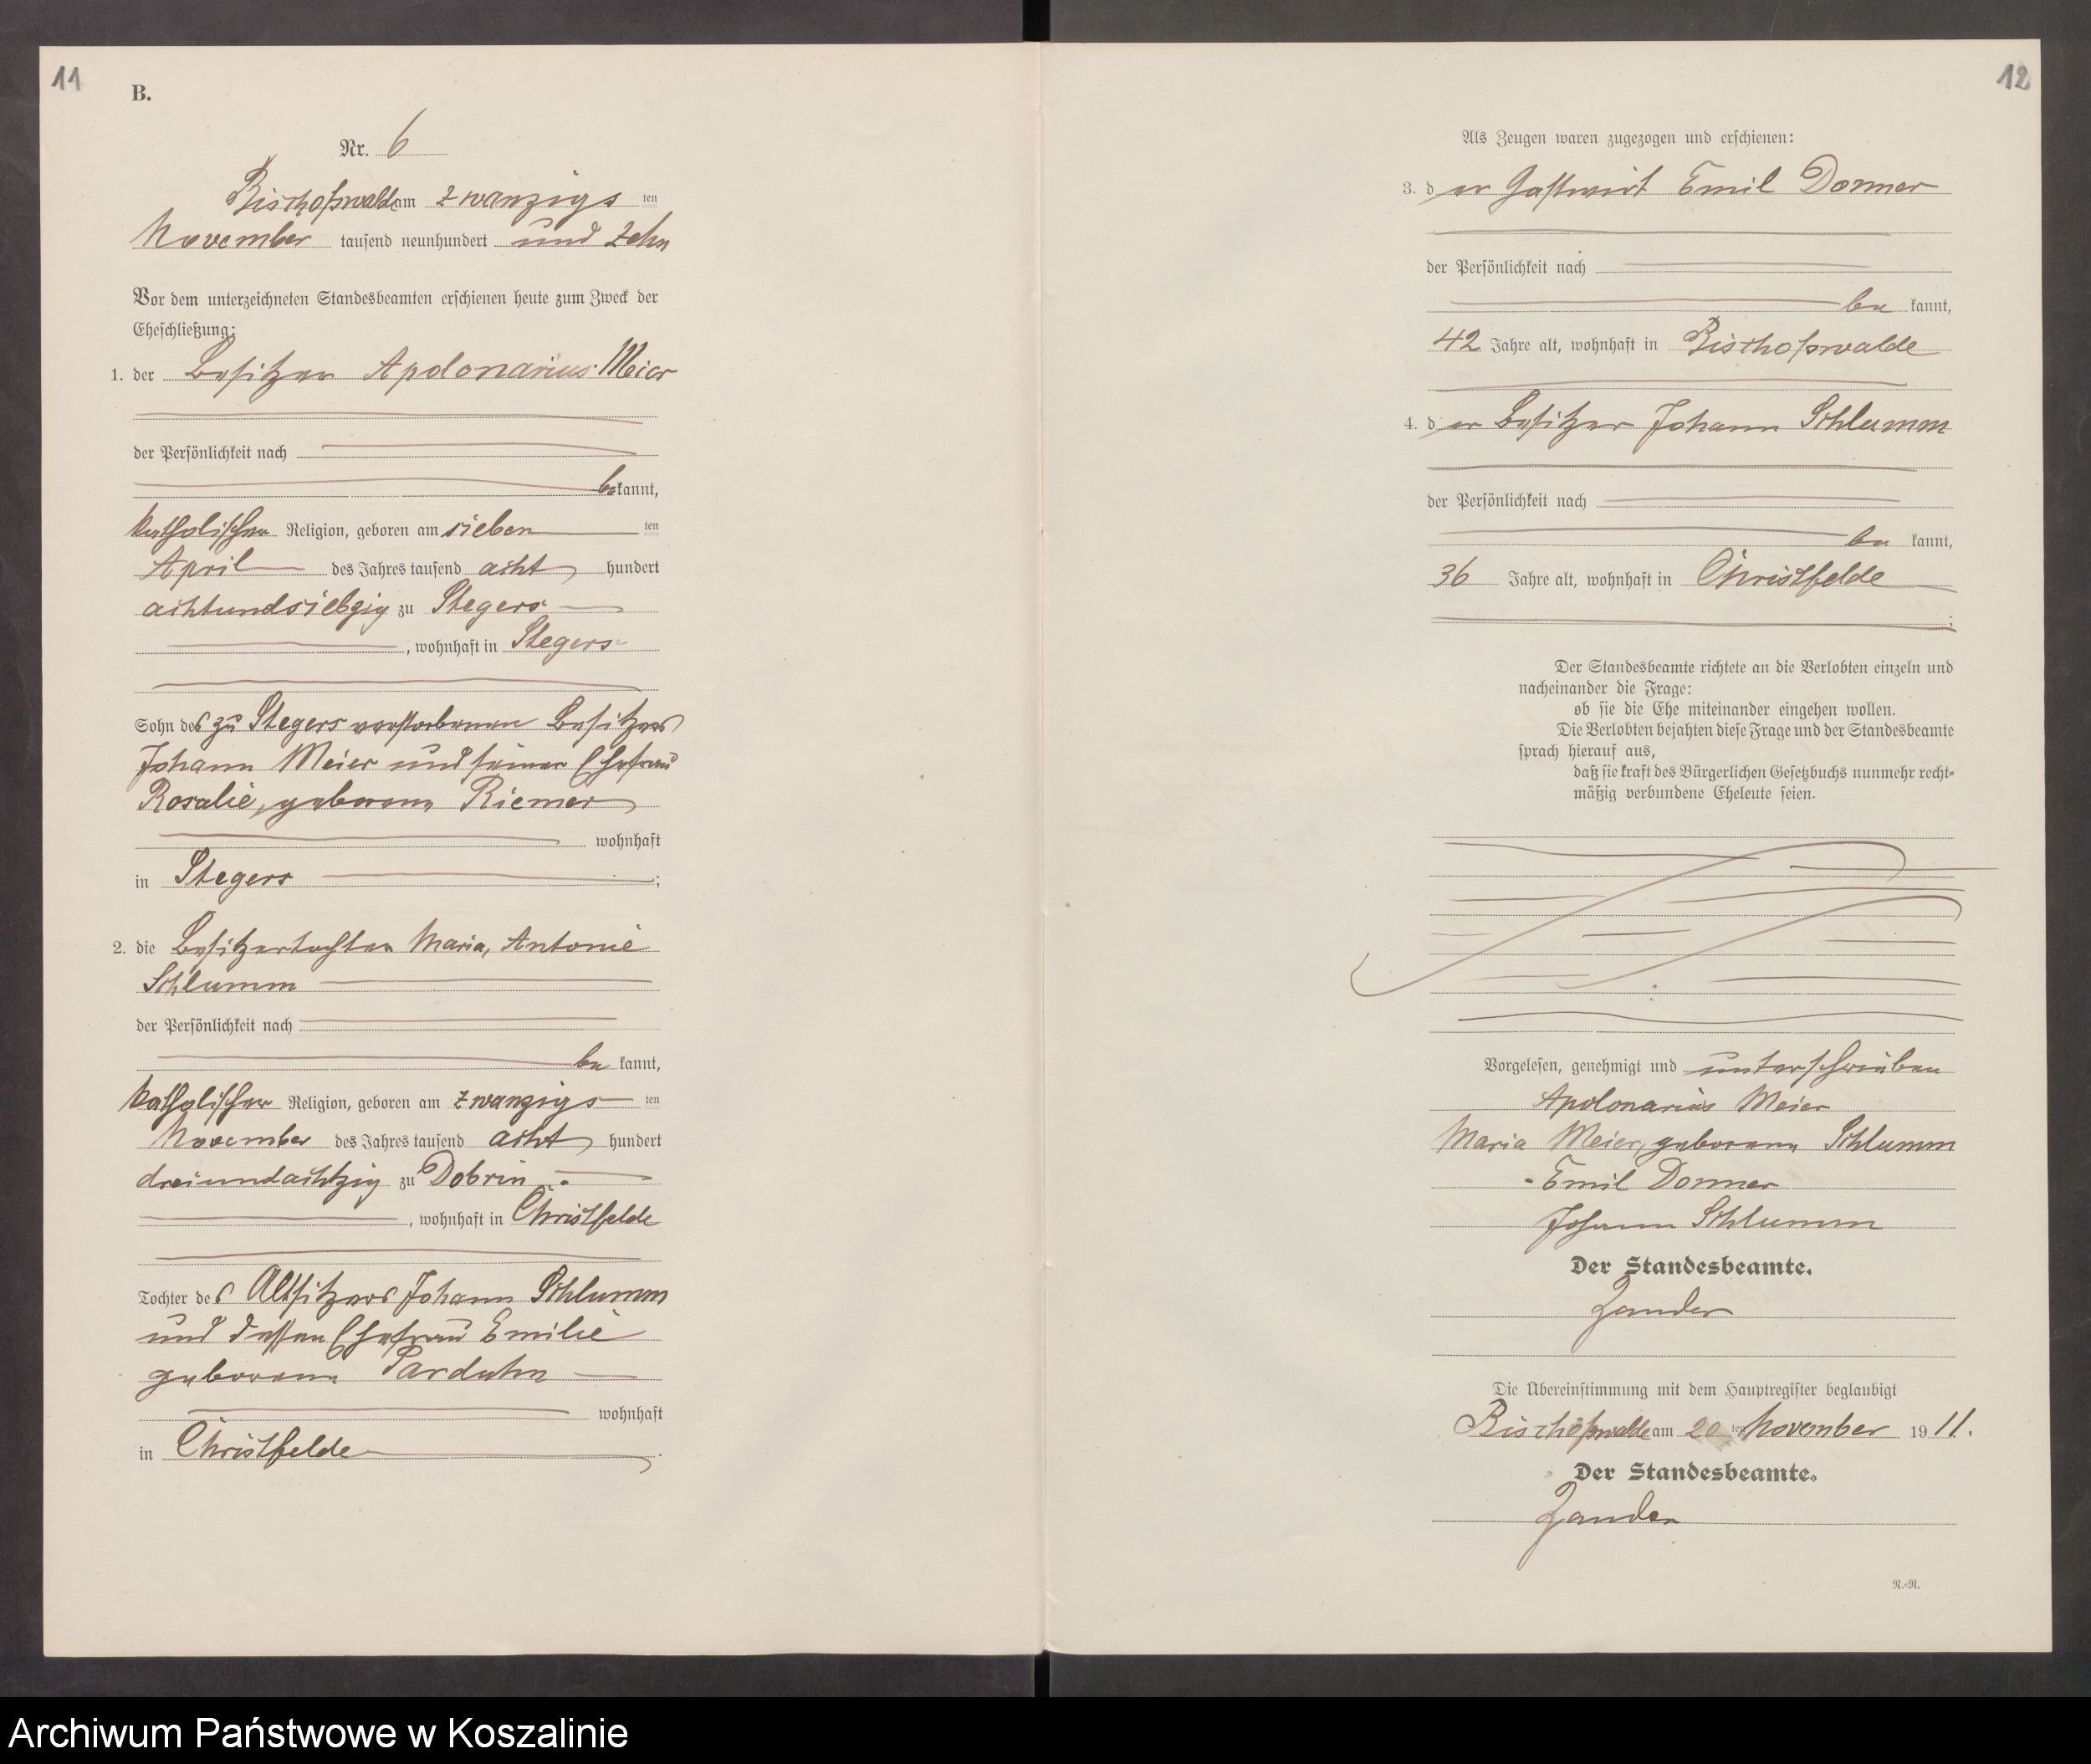 11
B.
Nr. 6
Bischofswalde am zwanzigs ten
November tausend neunhundert und zehn
Vor dem unterzeichneten Standesbeamten erschienen heute zum Zweck der
Eheschließung:
1. der Besitzer Apolonarius Meier
der Persönlichkeit nach
bekannt,
katholischer Religion, geboren am sieben ten
April des Jahres tausend acht hundert
achtundsiebzig zu Stegers
, wohnhaft in Stegers
Sohn des zu Stegers verstorbenen Besitzers
Johann Meier und seiner Ehefrau
Rosalie, geborene Riemer
wohnhaft
in Stegers ;
2. die Besitzertochter Maria, Antonie
Schlumm
der Persönlichkeit nach
be kannt,
katholischer Religion, geboren am zwanzigs ten
November des Jahres tausend acht hundert
dreiundachtzig zu Dobrin
, wohnhaft in Christfelde
Tochter des Altsitzers Johann Schlumm
und dessen Ehefrau Emilie
geborene Parduhn
wohnhaft
in Christfelde .
12
Als Zeugen waren zugezogen und erschienen:
3. der Gastwirt Emil Donner
der Persönlichkeit nach
be kannt,
42 Jahre alt, wohnhaft in Bischofswalde
4. der Besitzer Johann Schlumm
der Persönlichkeit nach
be kannt,
36 Jahre alt, wohnhaft in Christfelde
;
Der Standesbeamte richtete an die Verlobten einzeln und
nacheinander die Frage:
ob sie die Ehe miteinander eingehen wollen.
Die Verlobten bejahten diese Frage und der Standesbeamte
sprach hierauf aus,
daß sie kraft des Bürgerlichen Gesetzbuchs nunmehr recht-
mäßig verbundene Eheleute seien.
Vorgelesen, genehmigt und unterschrieben
Apolonarius Meier
Maria Meier, geborene Schlumm
Emil Donner
Johann Schlumm
Der Standesbeamte.
Zander
Die Übereinstimmung mit dem Hauptregister beglaubigt
Bischofswalde am 20 ten November 19 11.
Der Standesbeamte.
Zander
R.-R.
Archiwum Państwowe w Koszalinie